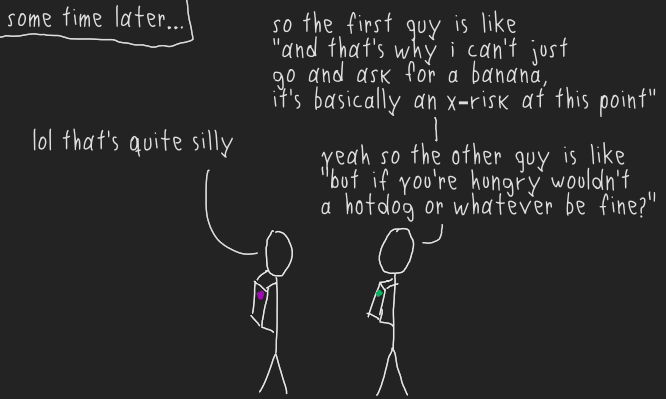 some time later...
so the first guy is like
"and that's why i can't just
go and ask for a banana,
it's basically an x-risk at this point"
lol that's quite silly
yeah so the other guy is like
"but if you're hungry wouldn't
a hotdog or whatever be fine?"